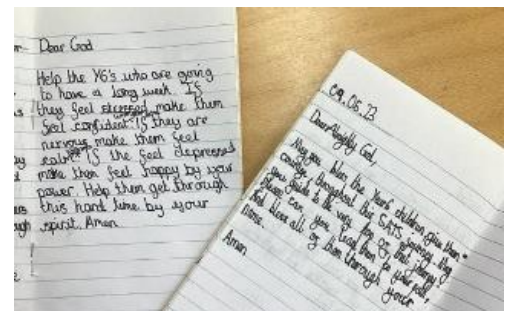 Dear God
Help the Y6's who are going
to have a long week. If
they feel stressed make them
feel confident. If they are
nervous make them feel
calm. If the feel depressed
make them feel happy by your
power. Help them get through
this hard time by your
spirit. Amen
09.05.23
Dear Almighty God,
May you bless the Year 6 children, give them
courage throughout their SATS journey, they
you guide is the way for on that journey,
please can you lead them to your path,
And bless all of them through your
name.
Amen